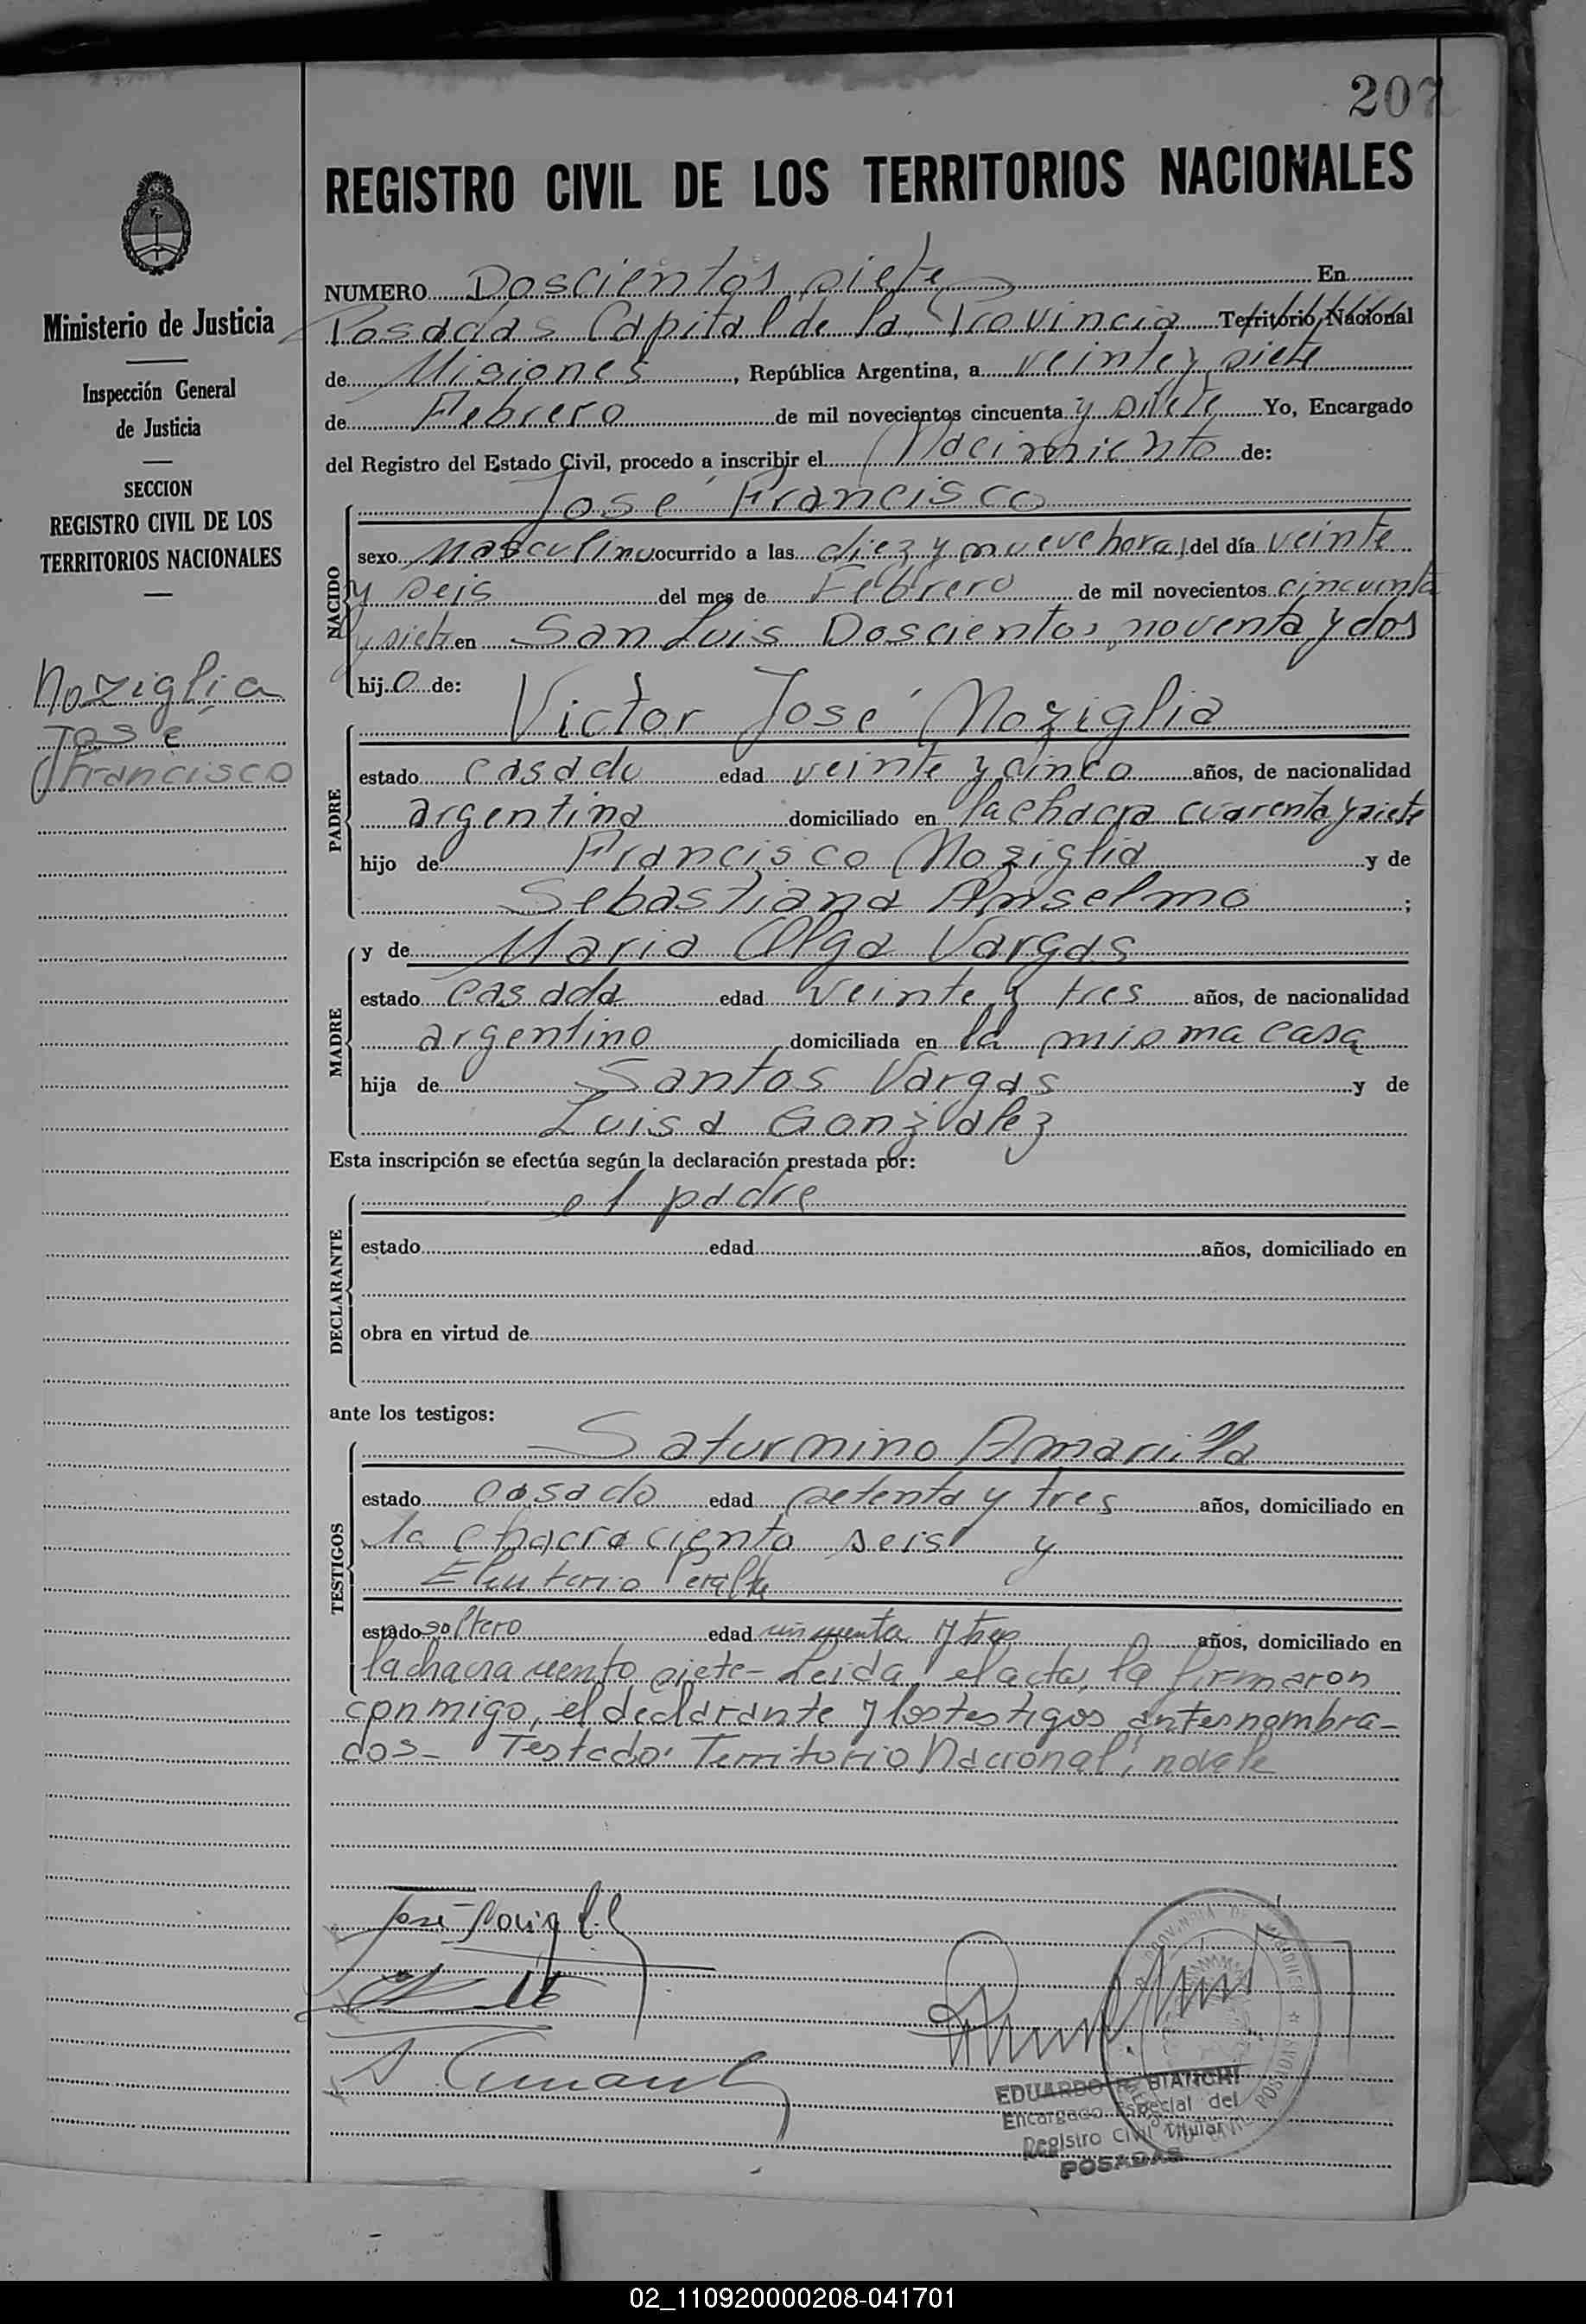 207
REGISTRO CIVIL DE LOS TERRITORIOS NACIONALES
Ministerio de Justicia
Inspección General
de Justicia
SECCION
REGISTRO CIVIL DE LOS
TERRITORIOS NACIONALES
Noziglia
José
Francisco
NUMERO Doscientos siete En
Posadas Capital de la Provincia Territorio Nacional
de Misiones, República Argentina, a veinte y siete
de Febrero de mil novecientos cincuenta y siete Yo, Encargado
del Registro del Estado Civil, procedo a inscribir el Nacimiento de:
NACIDO
José Francisco
sexo Masculino ocurrido a las diez y nueve horas del día veinte
y seis del mes de Febrero de mil novecientos cincuenta
y siete en San Luis Doscientos noventa y dos
hijo de:
PADRE
Victor José Noziglia
estado casado edad veinte y cinco años, de nacionalidad
argentina domiciliado en la chacra cuarenta y siete
hijo de Francisco Noziglia y de
Sebastiana Anselmo ;
MADRE
y de Maria Olga Vargas
estado casada edad veinte y tres años, de nacionalidad
argentino domiciliada en la misma casa
hija de Santos Vargas y de
Luisa Gonzalez
Esta inscripción se efectúa según la declaración prestada por:
DECLARANTE
el padre
estado edad años, domiciliado en
obra en virtud de
ante los testigos:
TESTIGOS
Saturnino Amarilla
estado casado edad setenta y tres años, domiciliado en
la chacra ciento seis y
Eleuterio Peralta
estado soltero edad cincuenta y tres años, domiciliado en
la chacra ciento siete- Leida el acta, la firmaron
conmigo, el declarante y los testigos antes nombra-
dos- Testado: Territorio Nacional; no vale
EDUARDO R. BIANCHI
Encargado Especial del
Registro Civil Titular
POSADAS
02_110920000208-041701